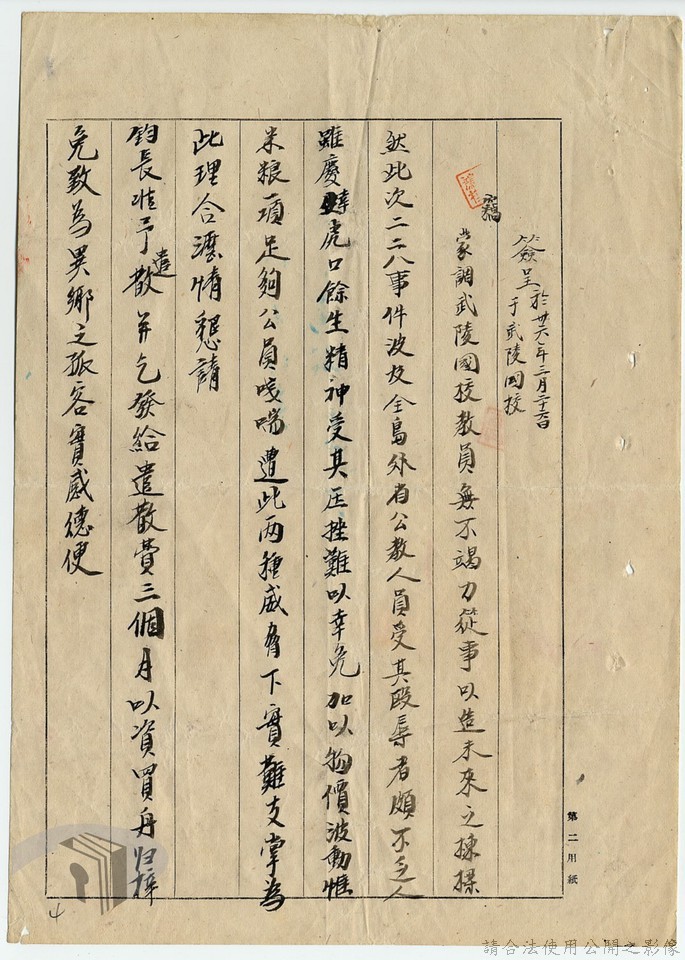 簽呈 於卅六年三月二十六日
于武陵國校
竊
蒙調武陵國校教員無不竭力從事以造未來之棟樑
然此次二二八事件波及全島外省公教人員受其毆辱者頗不乏人
雖慶 虎口餘生精神受其压挫難以幸免加以物價波動惟
米粮一項足夠公員咳喘遭此两種威脅下實難支掌為
此理合瀝情懇請
鈞長准予遣散并乞發給遣散費三個月以資買舟归梓
免致為異鄉之孤客實感德便
第二用紙
4
請合法使用公開之影像